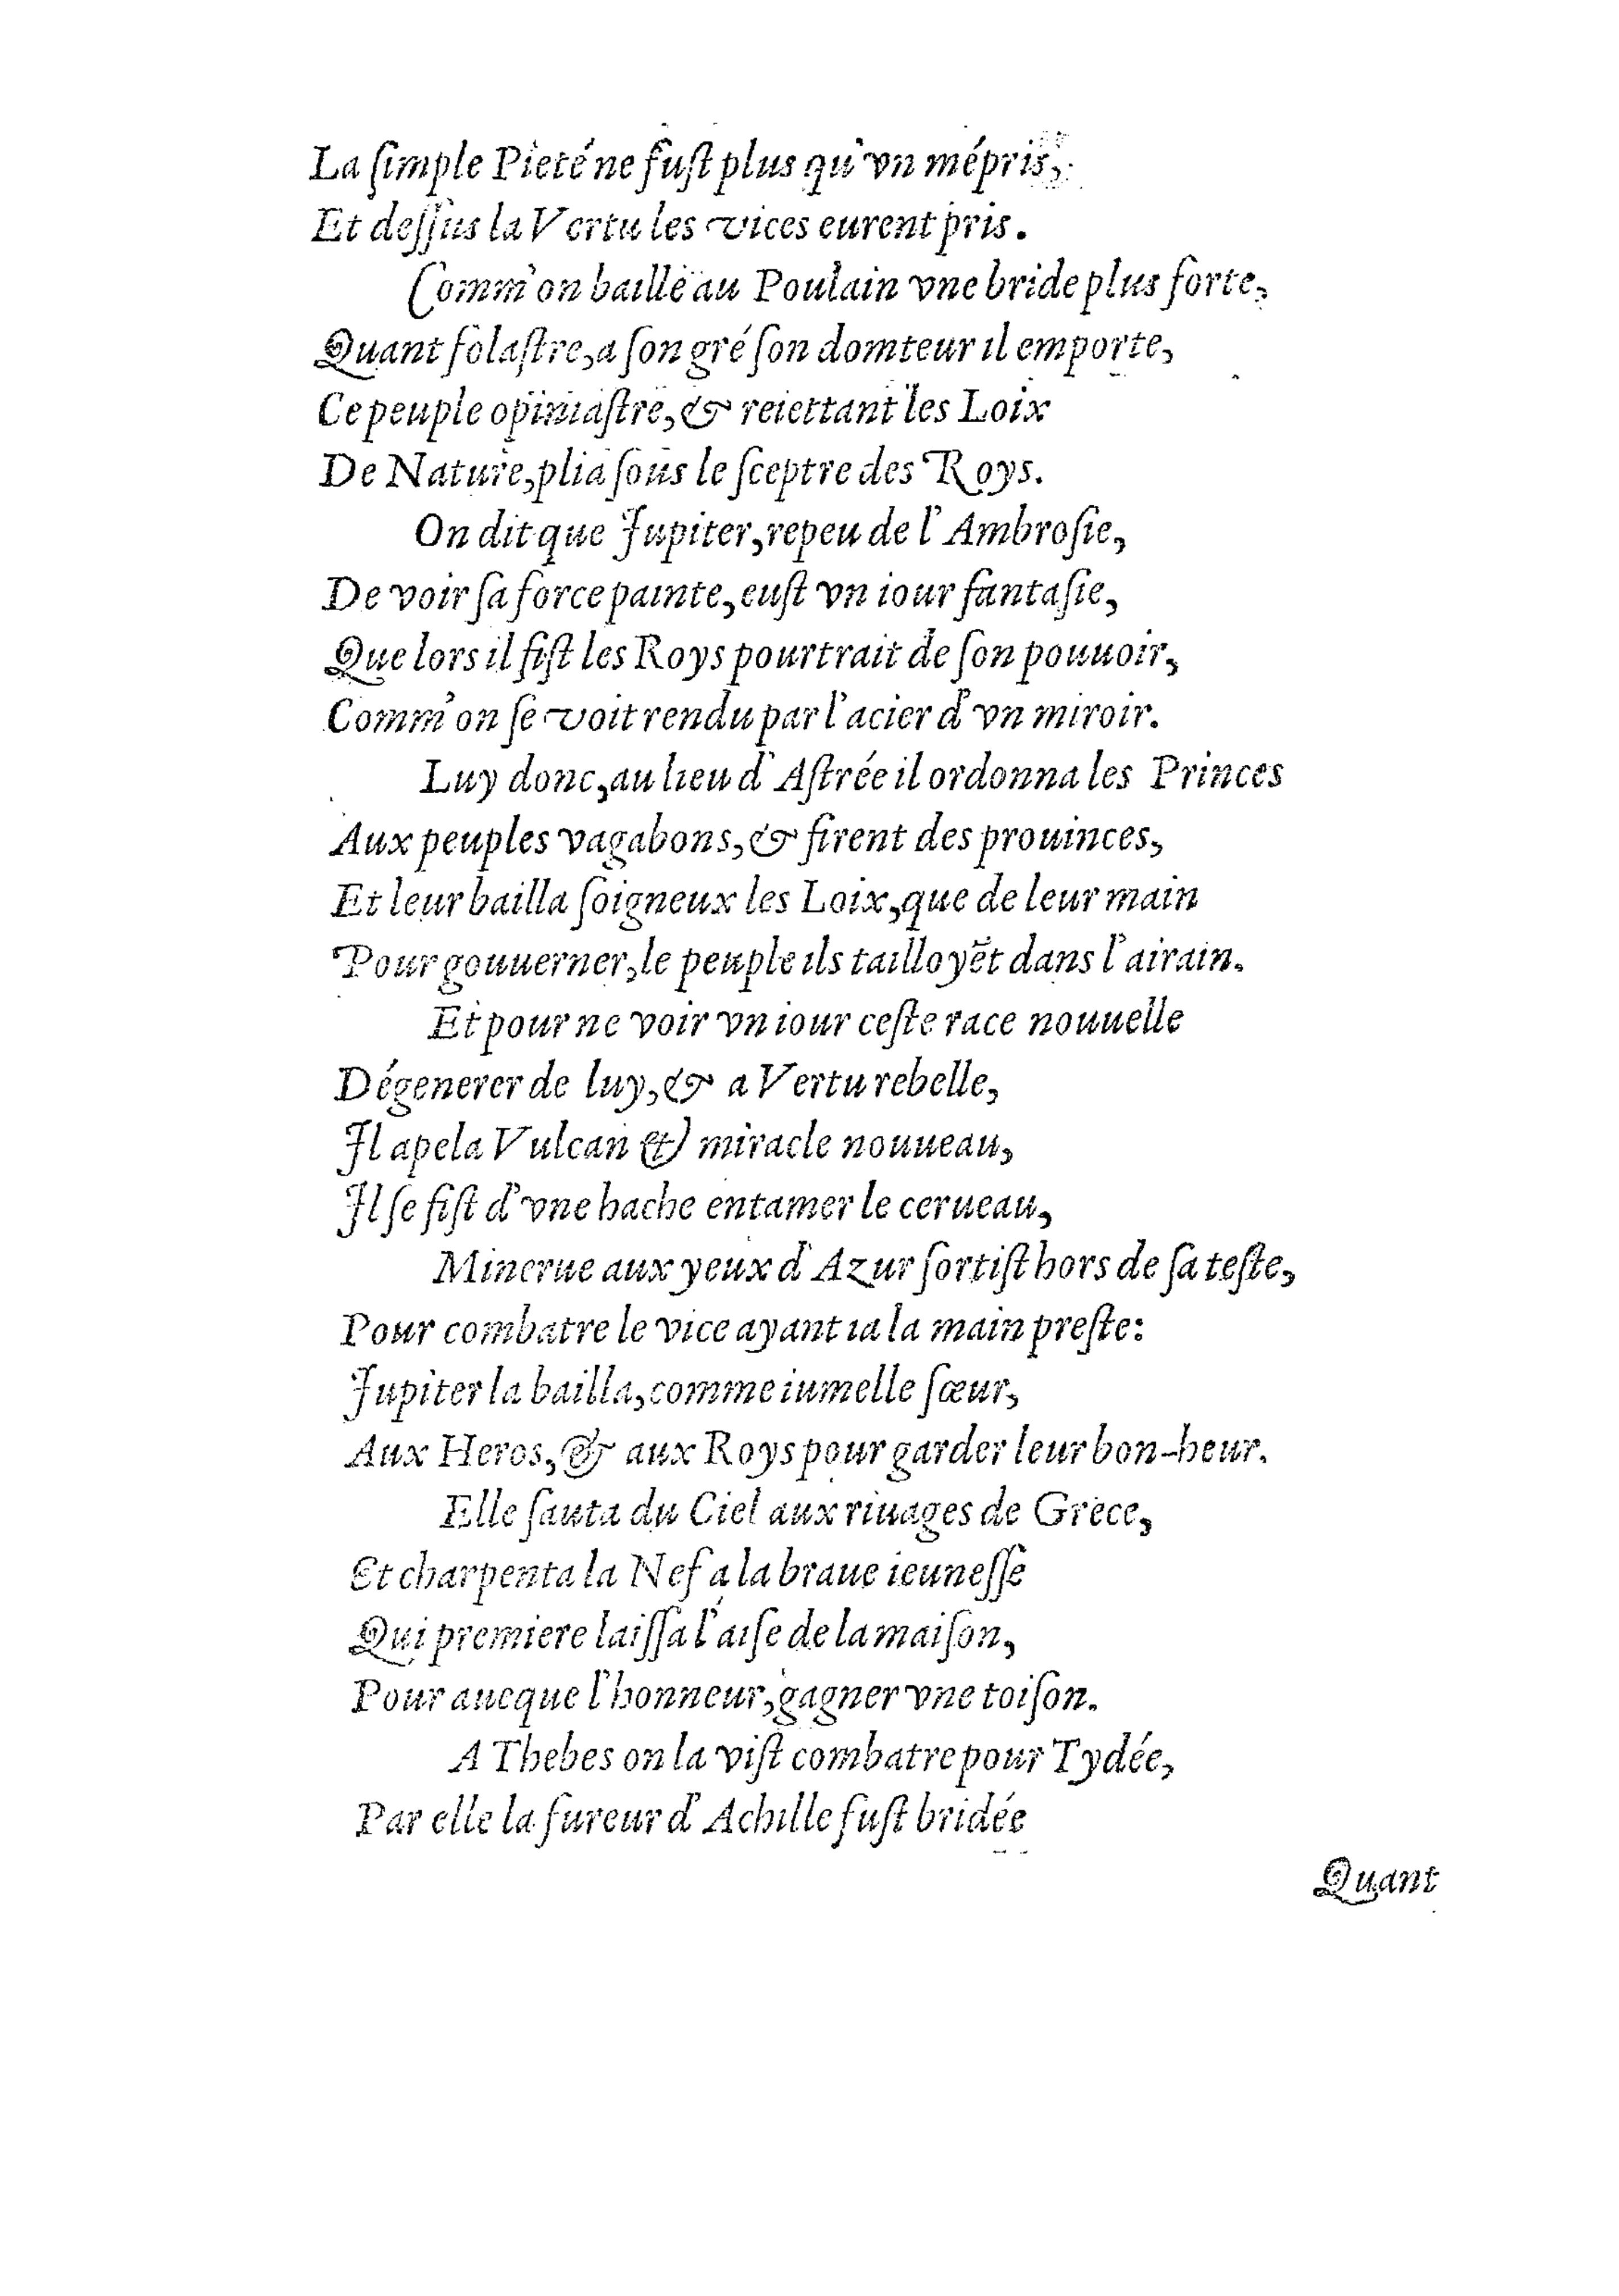 La ſimple Pieté ne fuſt plus qu'vn mépris,
Et deſſus la Vertu les vices eurent pris.
Comm'on baille au Poulain vne bride plus forte,
Quant folaſtre, a ſon gré ſon domteur il emporte,
Ce peuple opiniaſtre, & reiettant les Loix
De Nature, plia ſous le ſceptre des Roys.
On dit que Jupiter, repeu de l'Ambroſie,
De voir ſa force painte, euſt vn iour fantaſie,
Que lors il fiſt les Roys pourtrait de ſon pouuoir,
Comm'on ſe voit rendu par l'acier d'vn miroir.
Luy donc, au lieu d'Aſtrée il ordonna les Princes
Aux peuples vagabons, & firent des prouinces,
Et leur bailla ſoigneux les Loix, que de leur main
Pour gouuerner, le peuple ils tailloyẽt dans l'airain.
Et pour ne voir vn iour ceſte race nouuelle
Dégenerer de luy, & a Vertu rebelle,
Il apela Vulcan & miracle nouueau,
Il ſe fiſt d'vne hache entamer le cerueau,
Minerue aux yeux d'Azur ſortiſt hors de ſa teſte,
Pour combatre le vice ayant ia la main preſte:
Jupiter la bailla, comme iumelle ſœur,
Aux Heros, & aux Roys pour garder leur bon-heur.
Elle ſauta du Ciel aux riuages de Grece,
Et charpenta la Nef a la braue ieuneſſe
Qui premiere laiſſa l'aiſe de la maiſon,
Pour auecque l'honneur, gagner vne toiſon.
A Thebes on la viſt combatre pour Tydée,
Par elle la fureur d'Achille fuſt bridée
Quant